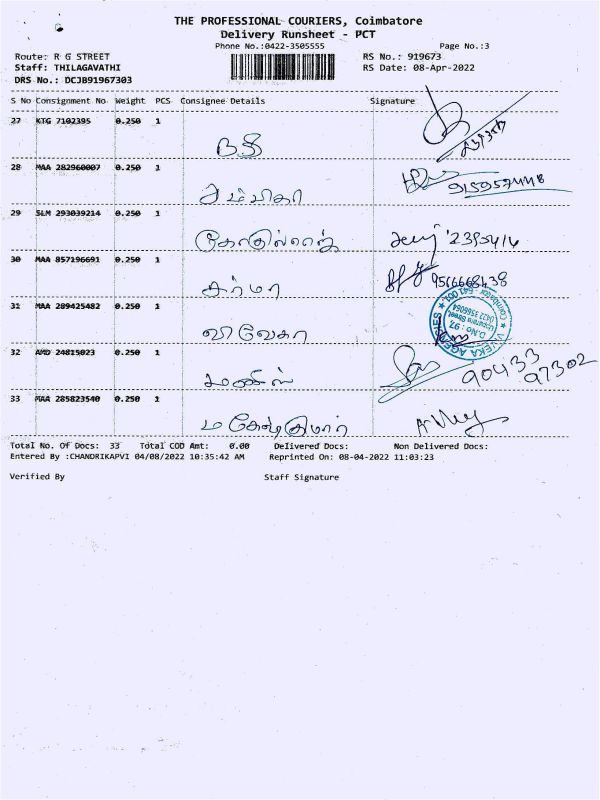 THE PROFESSIONAL COURIERS, Coimbatore
Delivery Runsheet - PCT
Phone No.:0422-3505555 Page No.:3
Route: R G STREET RS No.: 919673
Staff: THILAGAVATHI RS Date: 08-Apr-2022
DRS No.: DCJB91967303
S No Consignment No Weight PCS Consignee Details Signature
27 KTG 7102395 0.250 1
28 MAA 282960007 0.250 1
29 SLM 293039214 0.250 1
30 MAA 857196691 0.250 1 சுர்மா
31 MAA 289425482 0.250 1 விவேகா
VIVEKA AGENCIES
D.No : 97,
Coimbatore - 641 001.
32 AMD 24815023 0.250 1 90433 97302
33 MAA 285823540 0.250 1 மகேஷ்குமார்
Total No. Of Docs: 33 Total COD Amt: 0.00 Delivered Docs: Non Delivered Docs:
Entered By :CHANDRIKAPVI 04/08/2022 10:35:42 AM Reprinted On: 08-04-2022 11:03:23
Verified By Staff Signature